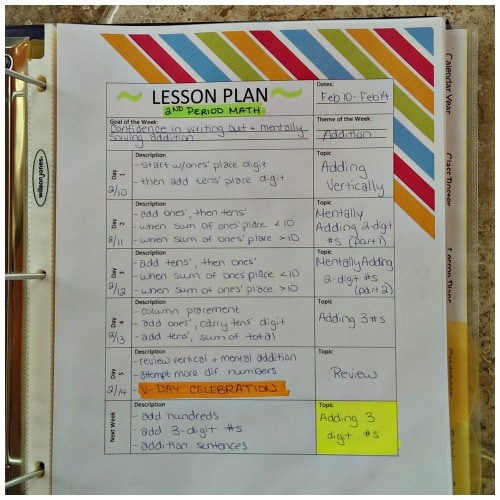 LESSON PLAN
2ND PERIOD MATH
Dates:
Feb 10 - Feb 14
Goal of the Week:
Confidence in writing out + mentally
solving addition
Theme of the Week:
Addition
Day 1
2/10
Description
- start w/ones' place digit
- then add tens' place digit
Topic
Adding
Vertically
Day 2
2/11
Description
- add ones', then tens'
- when sum of ones' place < 10
- when sum of ones' place > 10
Topic
Mentally
Adding 2-digit
#s (part 1)
Day 3
2/12
Description
- add tens', then ones'
- when sum of ones' place < 10
- when sum of ones' place > 10
Topic
Mentally Adding
2-digit #s
(part 2)
Day 4
2/13
Description
- column placement
- add ones', carry tens' digit
- add tens', sum of total
Topic
Adding 3 #s
Day 5
2/14
Description
- review vertical + mental addition
- attempt more dif. numbers
- V-DAY CELEBRATION
Topic
Review
Next Week
Description
- add hundreds
- add 3-digit #s
- addition sentences
Topic
Adding 3
digit #s
wilson jones
Calendar Year
Lesson Plans